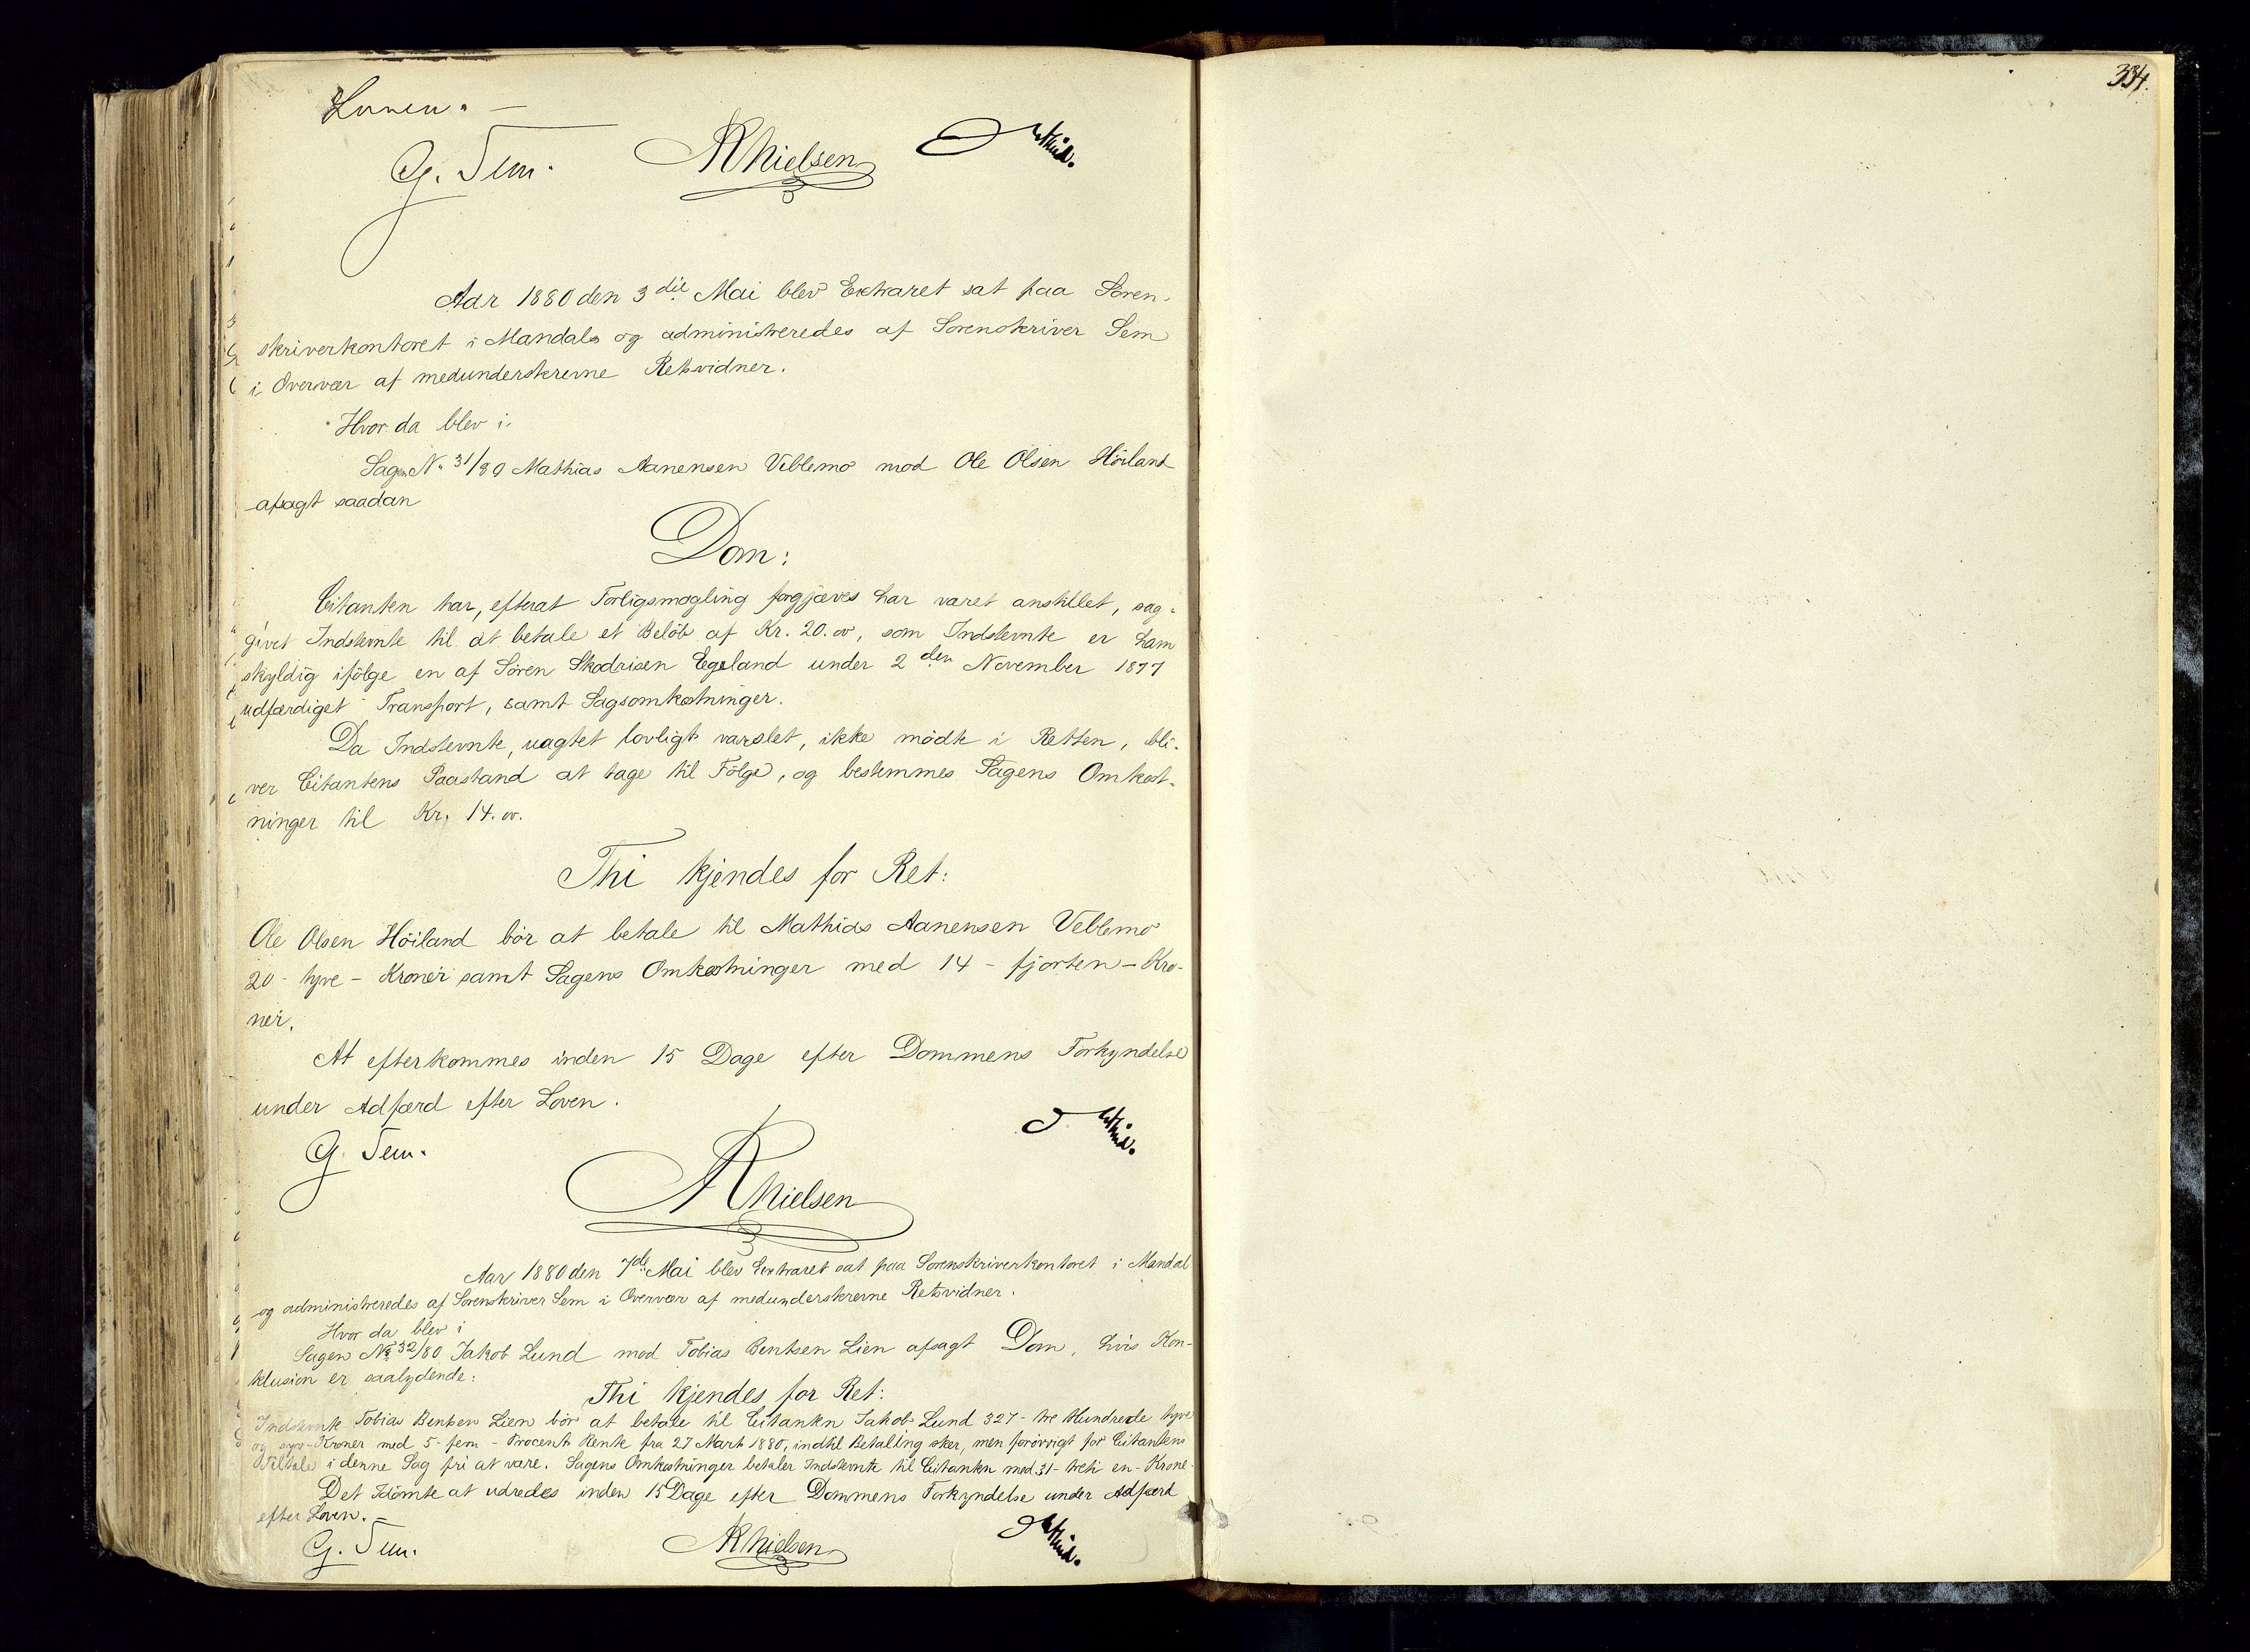 Loven. —
G. Sem. ARNielsen
Aar 1880 den 3die Mai blev Extraret sat paa Soren-
skriverkontoret i Mandal og administreredes af Sorenskriver Sem
i Overvær af medunderskrevne Retsvidner.
Hvor da blev i
Sagen N. 31/80 Mathias Aanensen Veblemo mod Ole Olsen Höiland
afsagt saadan
Dom:
Citanten har, efterat Forligsmægling forgjæves har været anstillet, sag-
givet Indstevnte til at betale et Belöb af Kr. 20.00, som Indstevnte er ham
skyldig ifölge en af Sören Skadrisen Egeland under 2den November 1877
udfærdiget Transport, samt Sagsomkostninger.
Da Indstevnte, uagtet lovligt varslet, ikke mödte i Retten, bli-
ver Citantens Paastand at tage til Fölge, og bestemmes Sagens Omkost-
ninger til Kr. 14.00.
Thi kjendes for Ret:
Ole Olsen Höiland bör at betale til Mathias Aanensen Veblemo
20 - tyve - Kroner samt Sagens Omkostninger med 14 - fjorten - Kro-
ner.
At efterkommes inden 15 Dage efter Dommens Forkyndelse
under Adfærd efter Loven.
G. Sem. ARNielsen
Aar 1880 den 7de Mai blev Extraret sat paa Sorenskriverkontoret i Mandal
og administreredes af Sorenskriver Sem i Overvær af medunderskrevne Retsvidner.
Hvor da blev i
Sagen No 32/80 Jakob Lund mod Tobias Bentsen Lien afsagt Dom, hvis Kon-
klusion er saalydende:
Thi kjendes for Ret:
Indstevnte Tobias Bentsen Lien bör at betale til Citanten Jakob Lund 327 - tre Hundrede tyve
og syv - Kroner med 5 - fem - Procent Rente fra 27 Marts 1880, indtil Betaling sker, men forövrigt for Citantens
Tiltale i denne Sag fri at være. Sagens Omkostninger betaler Indstevnte til Citanten med 31 - treti en - Krone
Det Idömte at udredes inden 15 Dage efter Dommens Forkyndelse under Adfærd
efter Loven. —
G. Sem. ARNielsen
334.